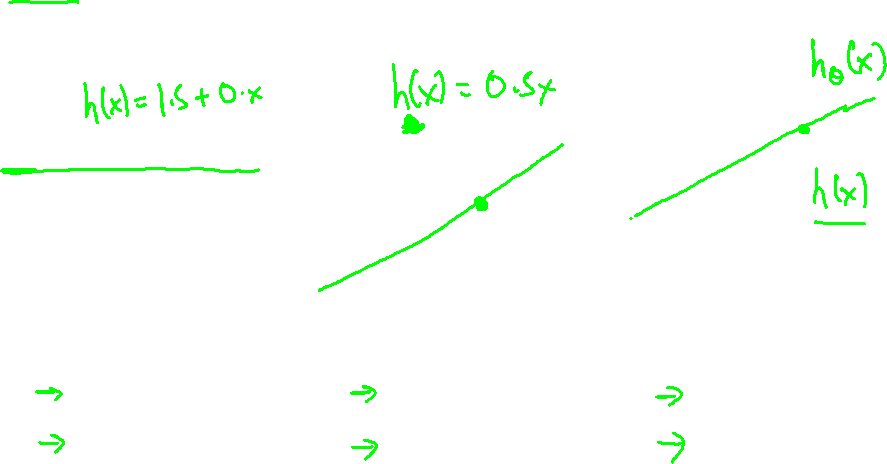 h(x) = 1.5 + 0·x
h(x) = 0.5x
hθ(x)
h(x)
→ → →
→ → →